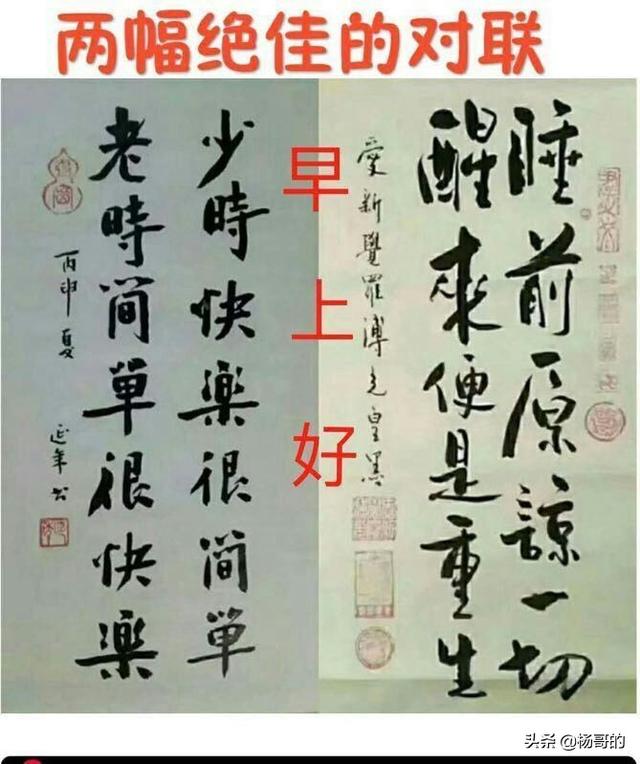 两幅绝佳的对联
睡前原諒一切
醒來便是重生
愛新覺羅溥
早上好
少時快樂很簡單
老時簡單很快樂
丙申夏
延年书
头条 @杨哥的